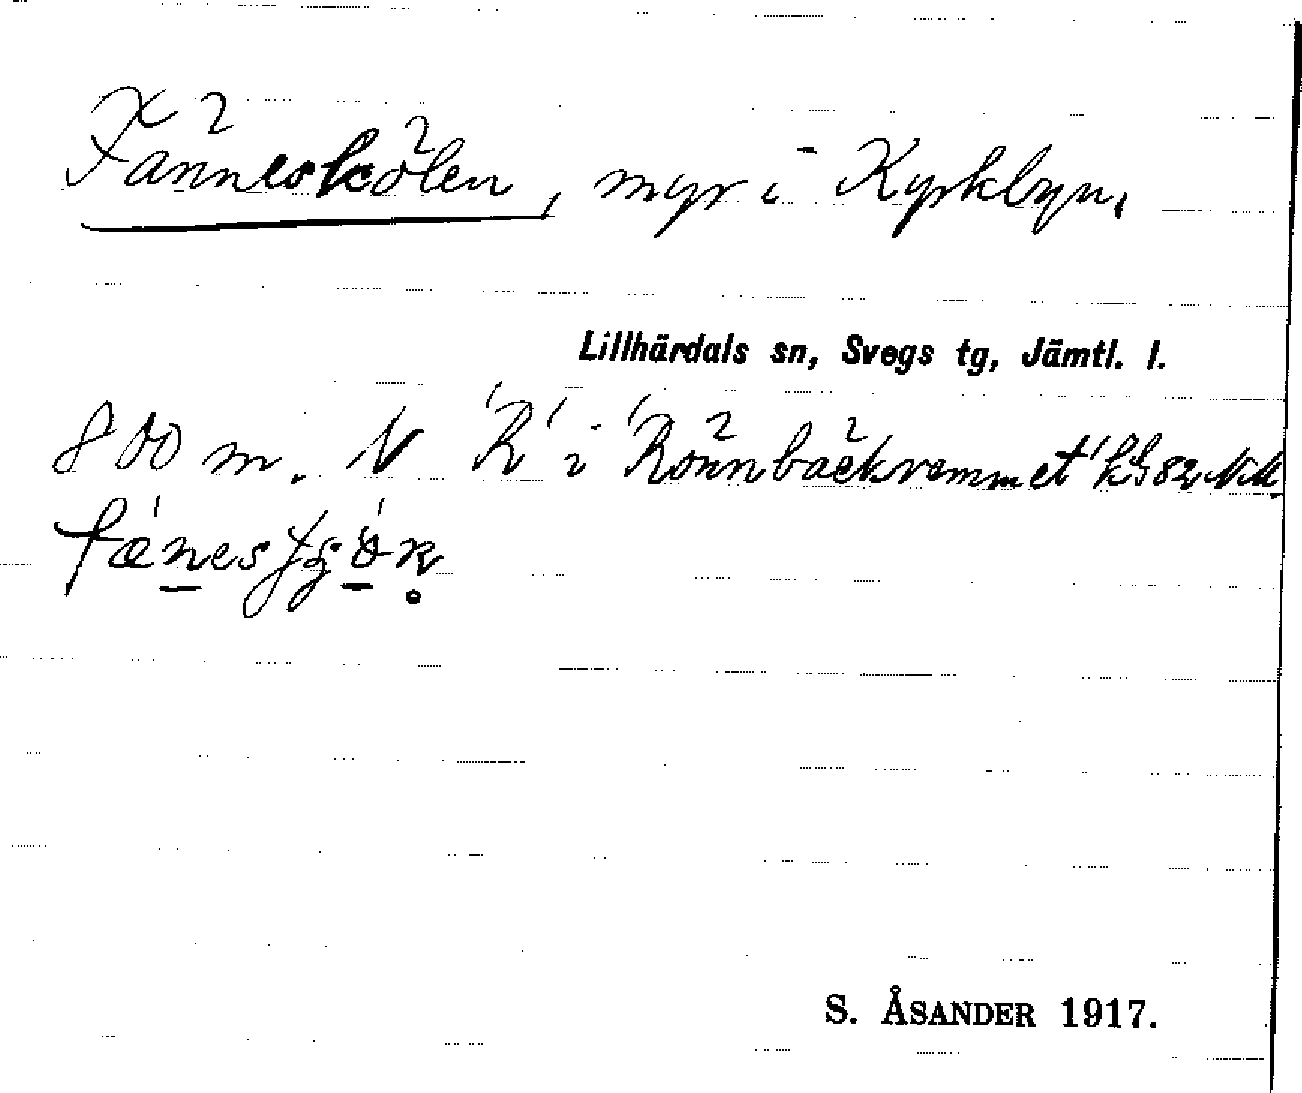 Fänneskölen, myr i Kyrkbyn,
Lillhärdals sn, Svegs tg, Jämtl. l.
800 m. N R i Rönnbäckvemmet
S. ÅSANDER 1917.